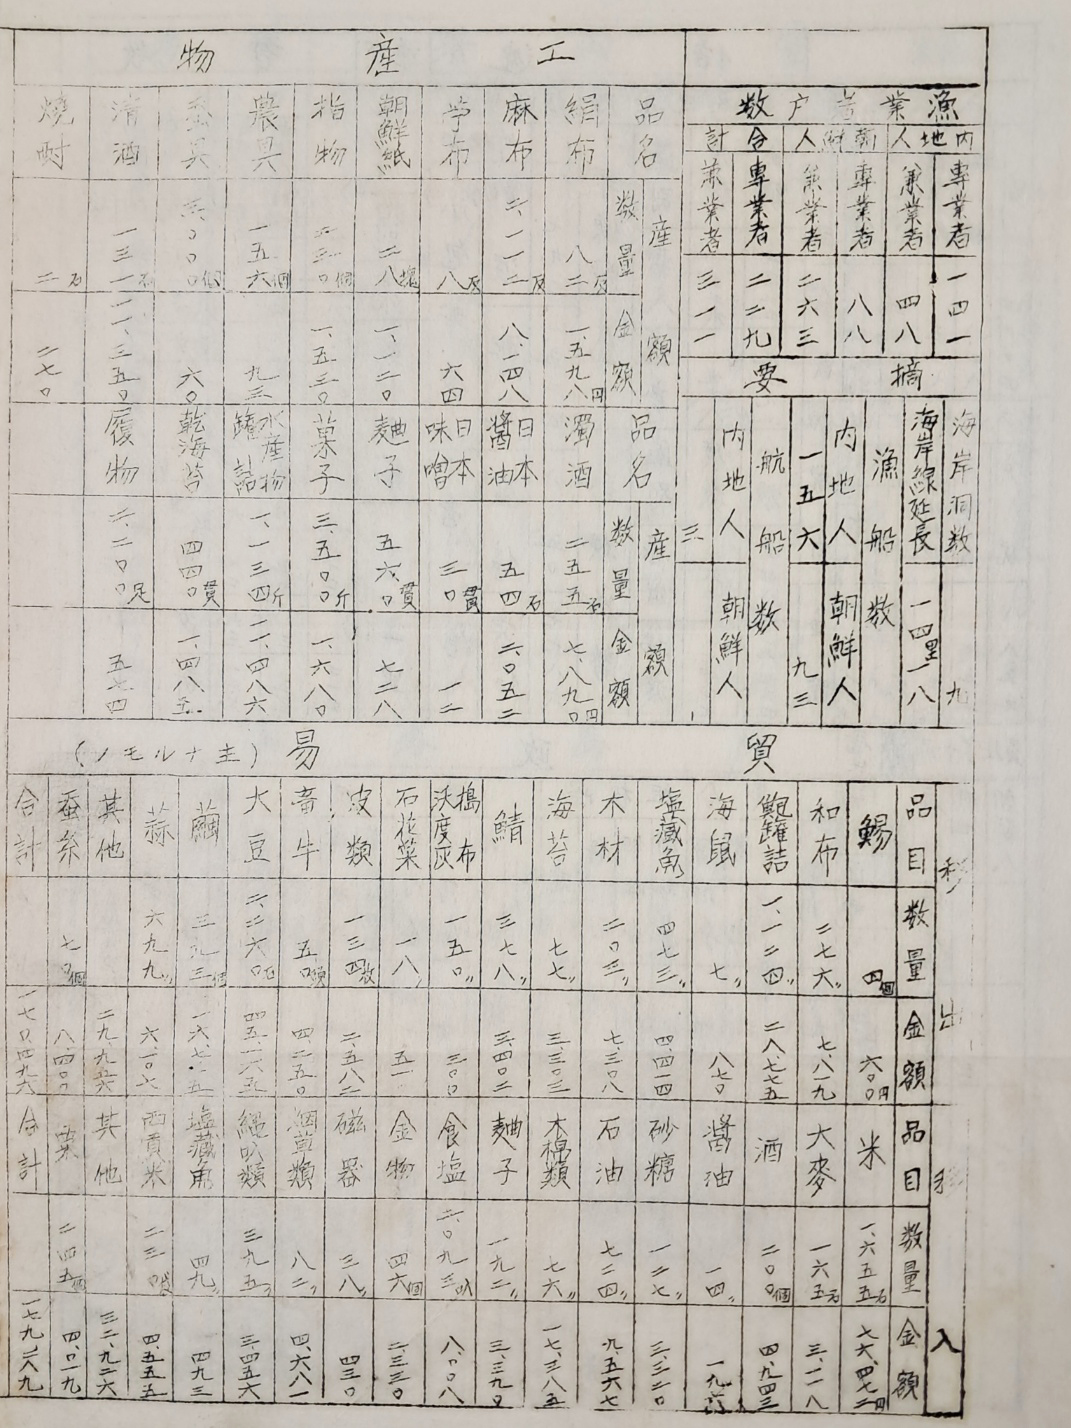 漁業者戸数
内地人
専業者 一四一
兼業者 四八
朝鮮人
専業者 八八
兼業者 二六三
合計
専業者 二二九
兼業者 三一一
摘要
海岸洞数 九
海岸線延長 一四里一八
漁船数
内地人 一五六
朝鮮人 九三
航船数
内地人 三
朝鮮人 一
工産物
品名 産額 数量 金額
絹布 八二反 一、五九八円
麻布 二、一一二反 八、一四八
苧布 八反 六四
朝鮮紙 二八塊 一、一二〇
指物 個 一、五三〇
農具 一五六個 九三
個 六〇
清酒 一三一石 一一、三五〇
焼酎 二石 二七〇
品名 産額 数量 金額
濁酒 二五五石 七、八九〇円
日本醤油 五四石 二〇五二
日本味噌 三〇貫 一二
麹子 五六〇貫 七二八
菓子 三、五〇〇斤 一、六八〇
水産物罐詰 一、一三四斤 一一、四八六
乾海苔 四四〇貫 一、四八五
履物 二、二〇〇足 五七四
貿易(主ナルモノ)
移出
品目 数量 金額
鰑 四個 六〇〇円
和布 二七六〃 七、八一九
鮑罐詰 一、一二四〃 二八、七七五
海鼠 七〃 八七〇
塩蔵魚 四七三〃 四、四一四
木材 二〇三〃 七、三〇八
海苔 七七〃 三、三〇三
鯖 三七八〃 三、四〇二
搗布沃度灰 一五〇〃 三〇〇
石花菜 一八〃 五一
皮類 一三四枚 二、五八二
畜牛 五〇頭 四、二五〇
大豆 二、二六〇石 四五、一六五
繭 三九三
蒜 六九九〃 六一〇七
其他 二九九五六
蚕糸 七〇個 八四〇〇
合計 一七〇、四九六
移入
品目 数量 金額
米 一、六五五石 七六、四七二円
大麥 一六五石 三、一一八
酒 二〇〇個 四、九四三
醤油 一四〃
砂糖 一二七〃 三、三二〇
石油 七二四〃 九、五六七
木棉類 七六〃 一七、三八五
麹子 一九二〃 三、三九〇
食塩 二、〇九三叺 八、〇〇八
金物 四六個 二、三三〇
磁器 三八〃 四三〇
類 八二〃 四、六八一
縄叺類 三九五〃 三、四五六
塩蔵魚 四九〃 四九三
西貢米 四、五五五
其他 三二、九二六
粟 二四五 四、〇一九
合計 一七九、二八九